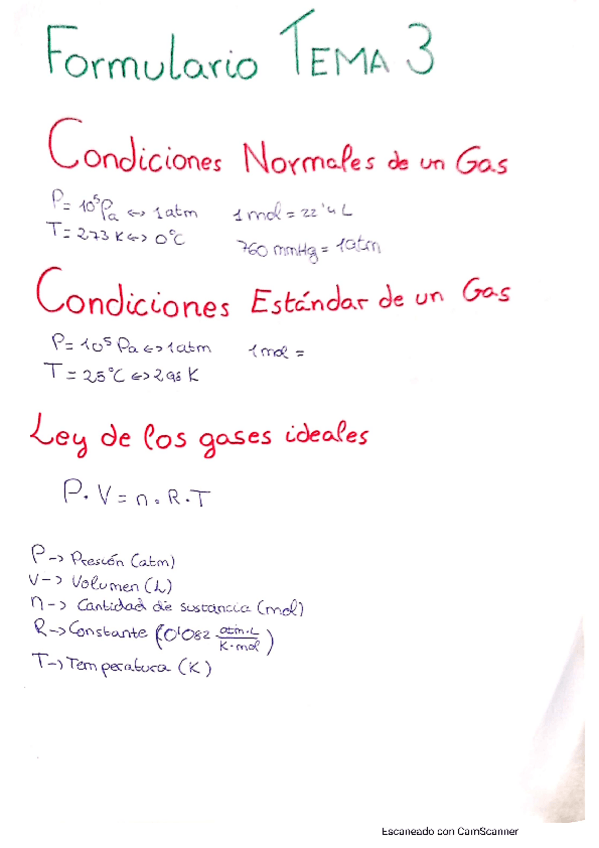 Formulario TEMA 3
Condiciones Normales de un Gas
P= 10⁵Pa <-> 1atm 1mol = 22'4 L
T= 273 K <-> 0°C 760 mmHg = 1atm
Condiciones Estándar de un Gas
P= 10⁵ Pa <-> 1atm 1mol =
T= 25°C <-> 298 K
Ley de los gases ideales
P. V = n. R. T
P -> Presión (atm)
V -> Volumen (L)
n -> Cantidad de sustancia (mol)
R -> Constante (0'082 atm.L/K.mol)
T -> Temperatura (K)
Escaneado con CamScanner